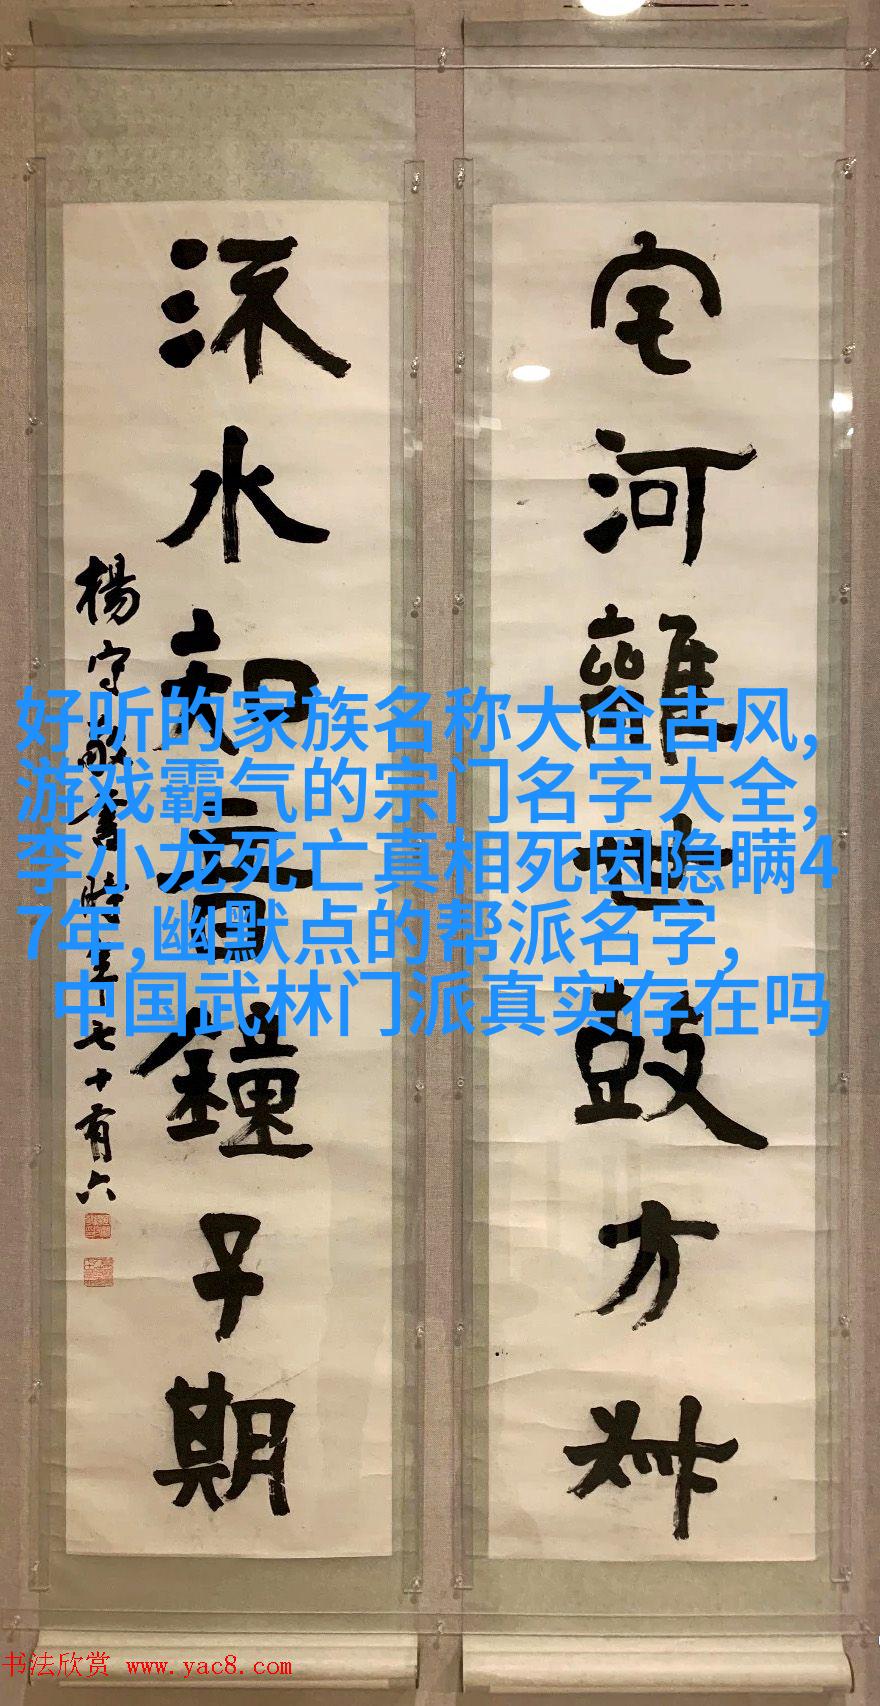 宅河離世鼓方叔
流水知音鐘子期
楊守敬書時年七十有六
好听的家族名称大全古风,
游戏霸气的宗门名字大全,
李小龙死亡真相死因隐瞒4
7年,幽默点的帮派名字,
中国武林门派真实存在吗
书法欣赏 www.yac8.com